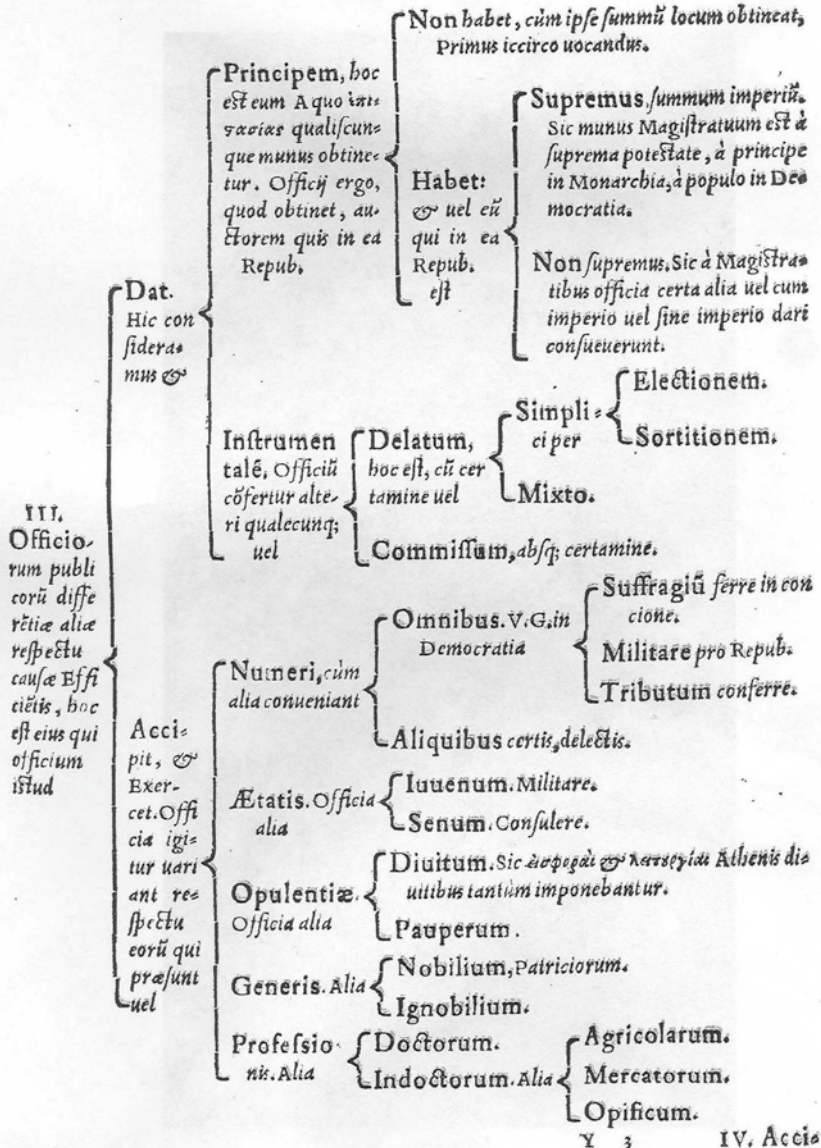 III.
Officio-
rum publi
corũ diffe
rẽtiæ aliæ
reſpectu
cauſæ Effi
ciẽtis, hoc
eſt eius qui
officium
iſtud
Dat.
Hic con
ſidera-
mus &
Principem, hoc
eſt eum A quo
qualiſcun-
que munus obtine-
tur. Officij ergo,
quod obtinet, au-
ctorem quis in ea
Repub.
Non habet, cùm ipſe ſummũ locum obtineat,
Primus iccirco uocandus.
Habet:
& uel eũ
qui in ea
Repub.
eſt
Supremus, ſummum imperiũ.
Sic munus Magiſtratuum eſt à
ſuprema poteſtate, à principe
in Monarchia, à populo in De-
mocratia.
Non ſupremus. Sic à Magiſtra-
tibus officia certa alia uel cum
imperio uel ſine imperio dari
conſueuerunt.
Inſtrumen
talẽ. Officiũ
cõfertur alte-
ri qualecunq;
uel
Delatum,
hoc eſt, cũ cer
tamine uel
Simpli-
ci per
Electionem.
Sortitionem.
Mixto.
Commiſſum, abſq; certamine.
Acci-
pit, &
Exer-
cet. Offi
cia igi-
tur uari
ant re-
ſpectu
eorũ qui
præſunt
uel
Numeri, cùm
alia conueniant
Omnibus. V. G. in
Democratia
Suffragiũ ferre in con
cione.
Militare pro Repub.
Tributum conferre.
Aliquibus certis, delectis.
Ætatis. Officia
alia
Iuuenum. Militare.
Senum. Conſulere.
Opulentiæ.
Officia alia
Diuitum. Sic & Athenis di-
uitibus tantùm imponebantur.
Pauperum.
Generis. Alia
Nobilium, Patriciorum.
Ignobilium.
Profeſsio-
nis. Alia
Doctorum.
Indoctorum. Alia
Agricolarum.
Mercatorum.
Opificum.
Y 3 IV. Acci-